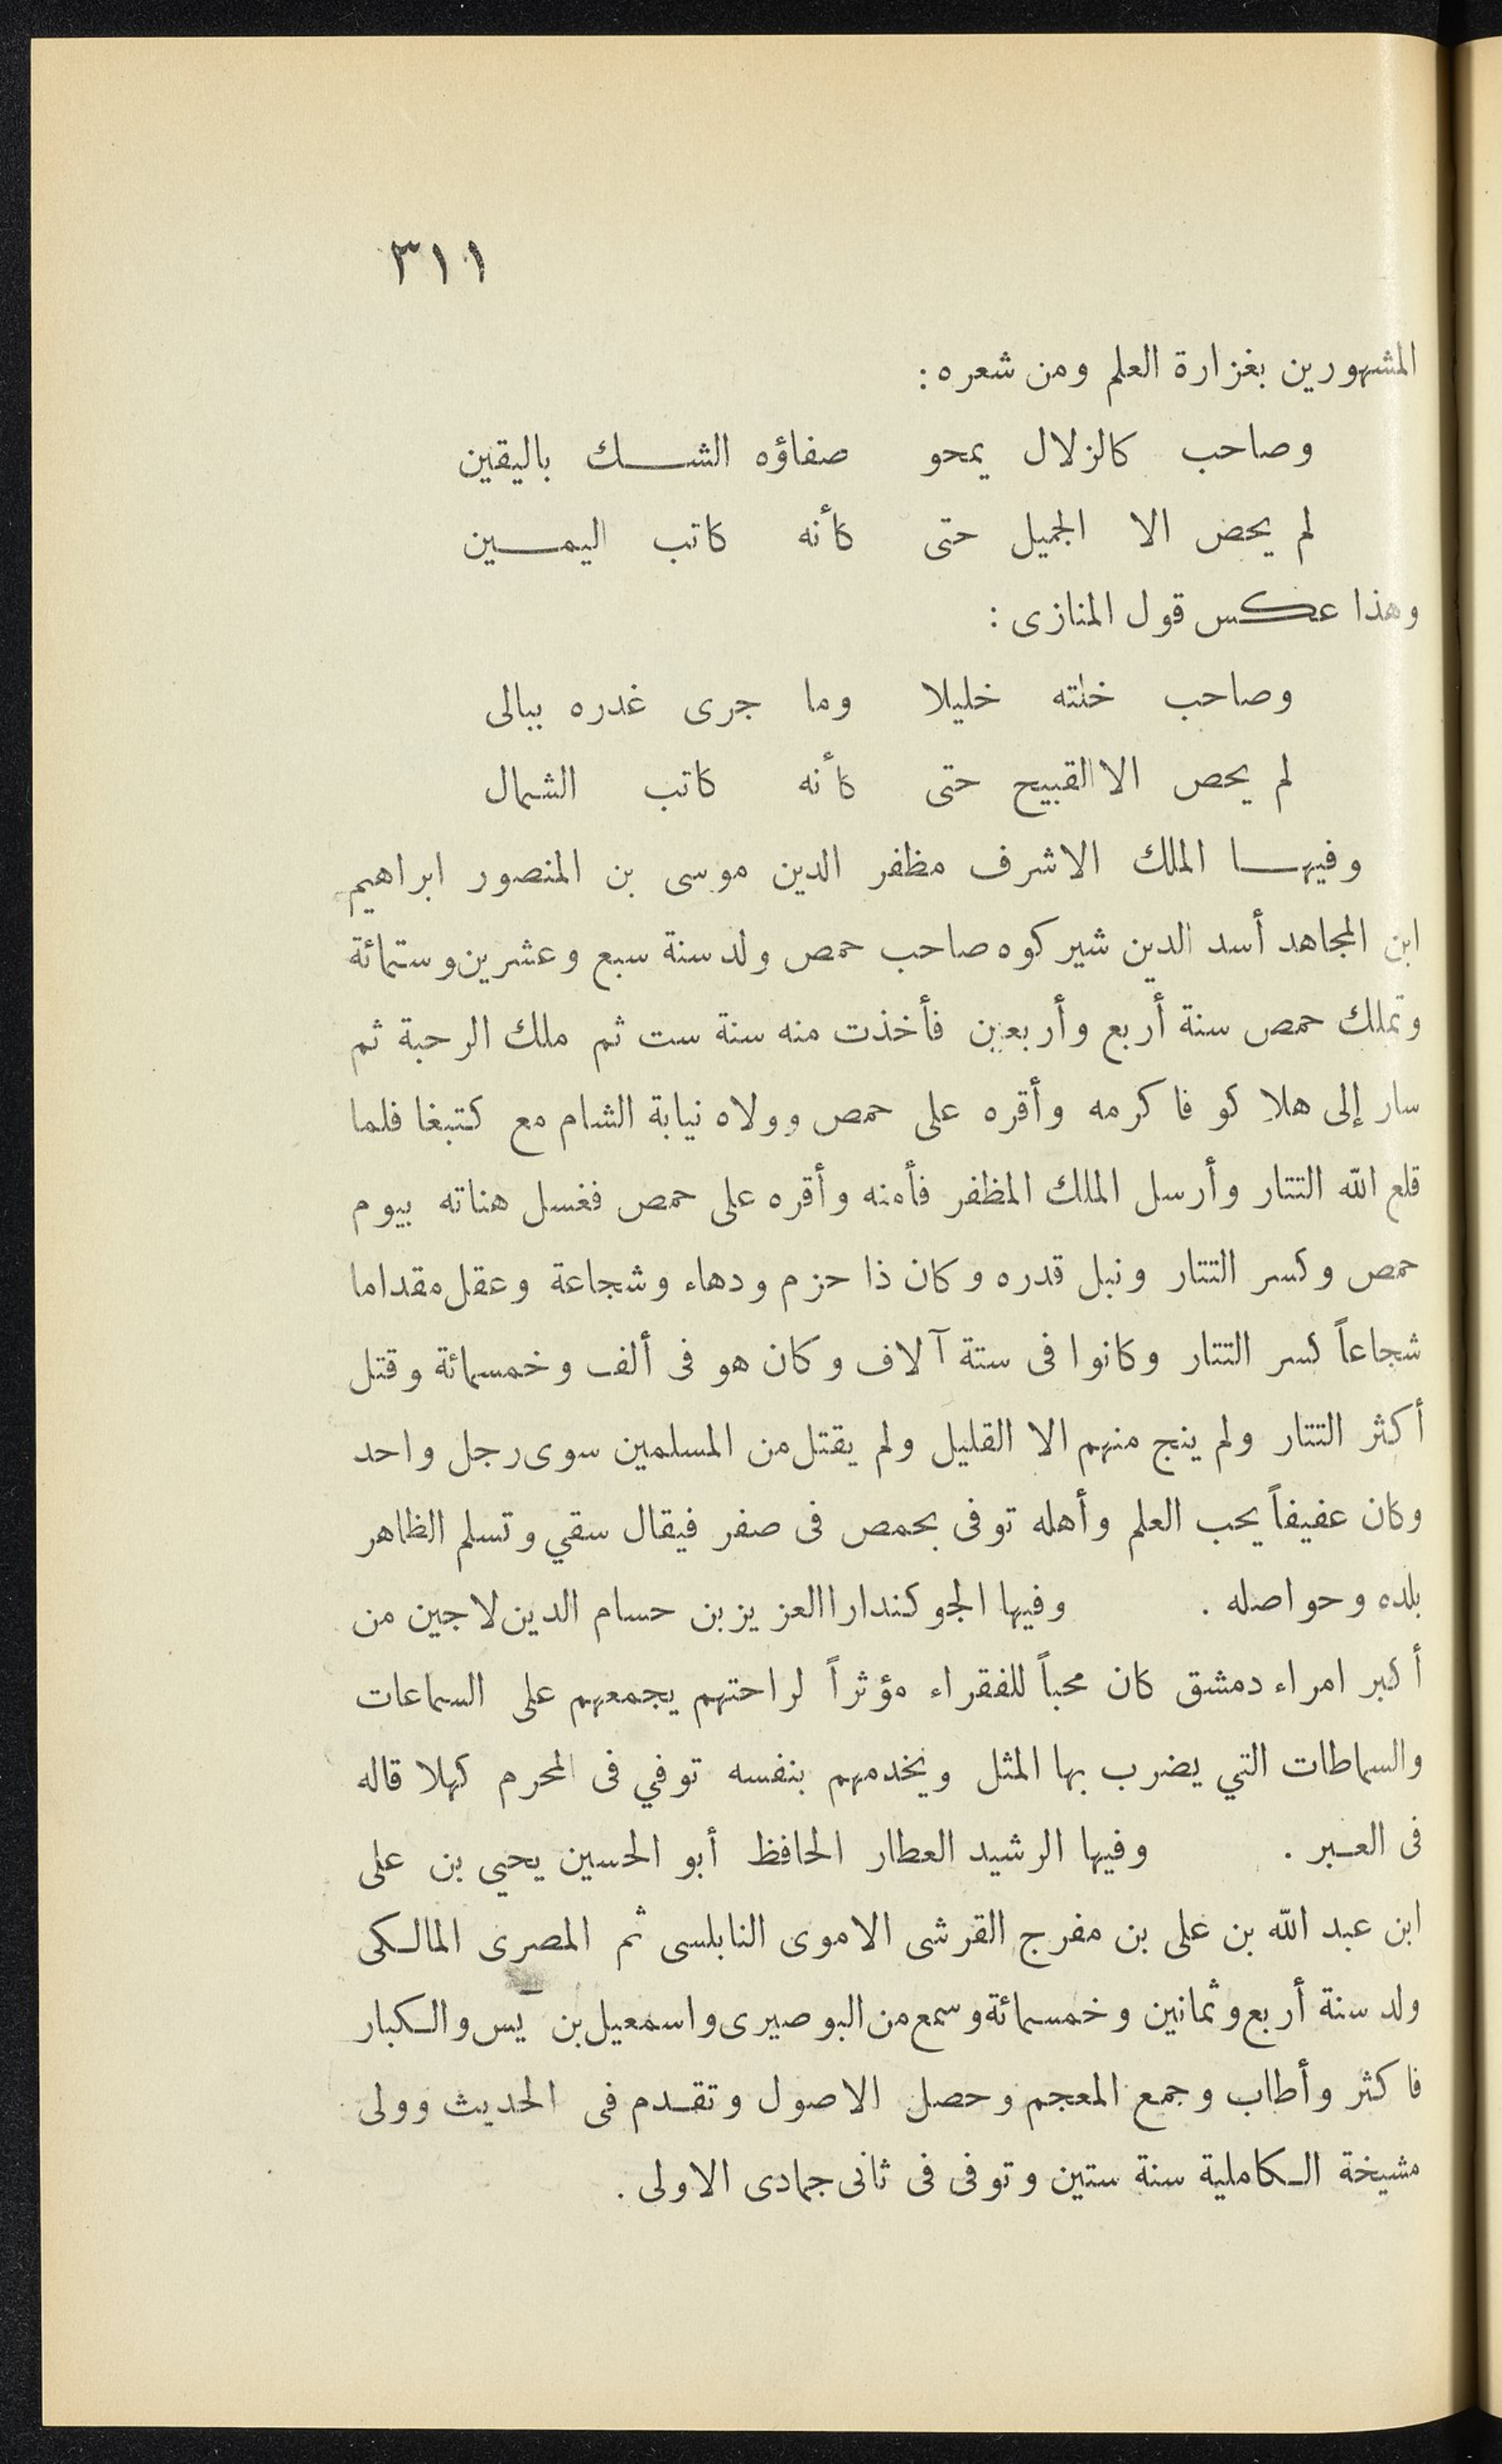 ٣١١
المشهورين بغزارة العلم ومن شعره :
وصاحب كالزلال يمحو صفاؤه الشك باليقين
لم يحض الا الجميل حتى كأنه كاتب اليمين
وهذا عكس قول المنازى :
وصاحب خلته خليلا وما جرى غدره ببالى
لم يحص الا القبيح حتى كأنه كاتب الشمال
وفيها الملك الاشرف مظفر الدين موسى بن المنصور ابراهيم
ابن المجاهد أسد الدين شيركوه صاحب حمص ولد سنة سبع وعشرين وستمائة
وتملك حمص سنة أربع وأربعين فأخذت منه سنة ست ثم ملك الرحبة ثم
سار إلى هلاكو فاكرمه وأقره على حمص وولاه نيابة الشام مع كتبغا فلما
قلع الله التتار وأرسل الملك المظفر فأمنه وأقره على حمص فغسل هناته بيوم
حمص وكسر التتار ونبل قدره وكان ذا حزم ودهاء وشجاعة وعقل مقداما
شجاعاً كسر التتار وكانوا فى ستة آلاف وكان هو فى ألف وخمسمائة وقتل
أكثر التتار ولم ينج منهم الا القليل ولم يقتل من المسلمين سوى رجل واحد
وكان عفيفاً يحب العلم وأهله توفى بحمص فى صفر فيقال سقي وتسلم الظاهر
بلده وحواصله . وفيها الجوكندارا العزيز بن حسام الدين لاجين من
أكبر امراء دمشق كان محباً للفقراء مؤثراً لراحتهم يجمعهم على السماعات
والسماطات التي يضرب بها المثل ويخدمهم بنفسه توفي فى المحرم كهلا قاله
فى العبر . وفيها الرشيد العطار الحافظ أبو الحسين يحيي بن على
ابن عبد الله بن على بن مفرج القرشى الاموى النابلسى ثم المصرى المالكى
ولد سنة أربع وثمانين وخمسمائة وسمع من البوصيرى واسمعيل بن يٓس والكبار
فاكثر وأطاب وجمع المعجم وحصل الاصول وتقدم فى الحديث وولى
مشيخة الكاملية سنة ستين وتوفى فى ثانى جمادى الاولى .